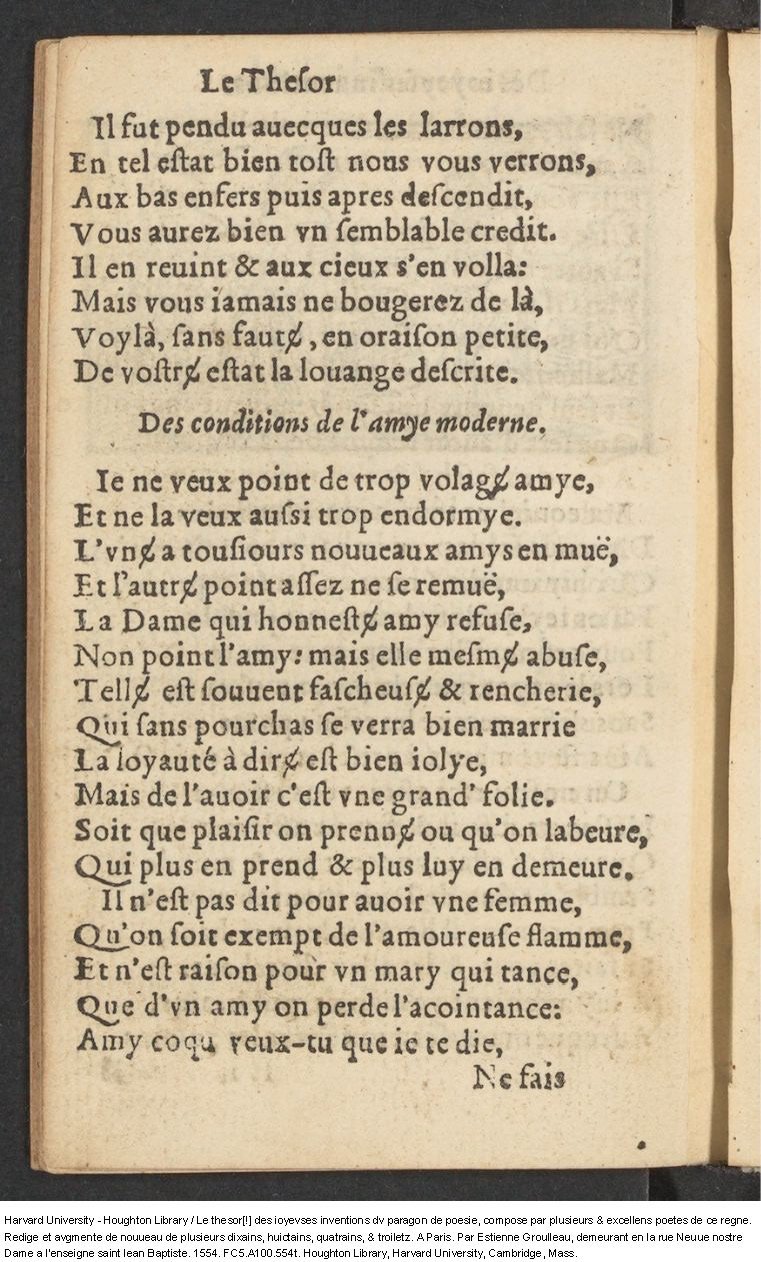 Le Theſor
Il fut pendu auecques les larrons,
En tel eſtat bien toſt nous vous verrons,
Aux bas enfers puis apres deſcendit,
Vous aurez bien vn ſemblable credit.
Il en reuint & aux cieux s'en volla:
Mais vous iamais ne bougerez de là,
Voylà, ſans fautɇ, en oraiſon petite,
De voſtrɇ eſtat la louange deſcrite.
Des conditions de l'amye moderne.
Ie ne veux point de trop volagɇ amye,
Et ne la veux auſsi trop endormye.
L'vnɇ a touſiours nouueaux amys en muë,
Et l'autrɇ point aſſez ne ſe remuë,
La Dame qui honneſtɇ amy refuſe,
Non point l'amy: mais elle meſmɇ abuſe,
Tellɇ eſt ſouuent faſcheuſɇ & rencherie,
Qui ſans pourchas ſe verra bien marrie
La loyauté à dirɇ eſt bien iolye,
Mais de l'auoir c'eſt vne grand' folie.
Soit que plaiſir on prennɇ ou qu'on labeure,
Qui plus en prend & plus luy en demeure.
Il n'eſt pas dit pour auoir vne femme,
Qu'on ſoit exempt de l'amoureuſe flamme,
Et n'eſt raiſon pour vn mary qui tance,
Que d'vn amy on perde l'acointance:
Amy coqu veux-tu que ie te die,
Ne fais
Harvard University - Houghton Library / Le thesor[!] des ioyevses inventions dv paragon de poesie, compose par plusieurs & excellens poetes de ce regne.
Redige et avgmente de nouueau de plusieurs dixains, huictains, quatrains, & troiletz. A Paris. Par Estienne Groulleau, demeurant en la rue Neuue nostre
Dame a l'enseigne saint Iean Baptiste. 1554. FC5.A100.554t. Houghton Library, Harvard University, Cambridge, Mass.